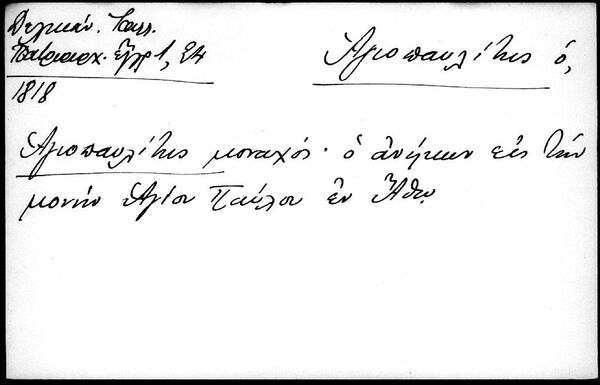 Δελικάν. Καλλ.
Πατριαρχ. ἔγγρ 1, 24
1818
Ἁγιοπαυλίτης ὁ,
Ἁγιοπαυλίτης μοναχός· ὁ ἀνήκων εἰς τὴν
μονὴν Ἁγίου Παύλου ἐν Ἄθῳ.